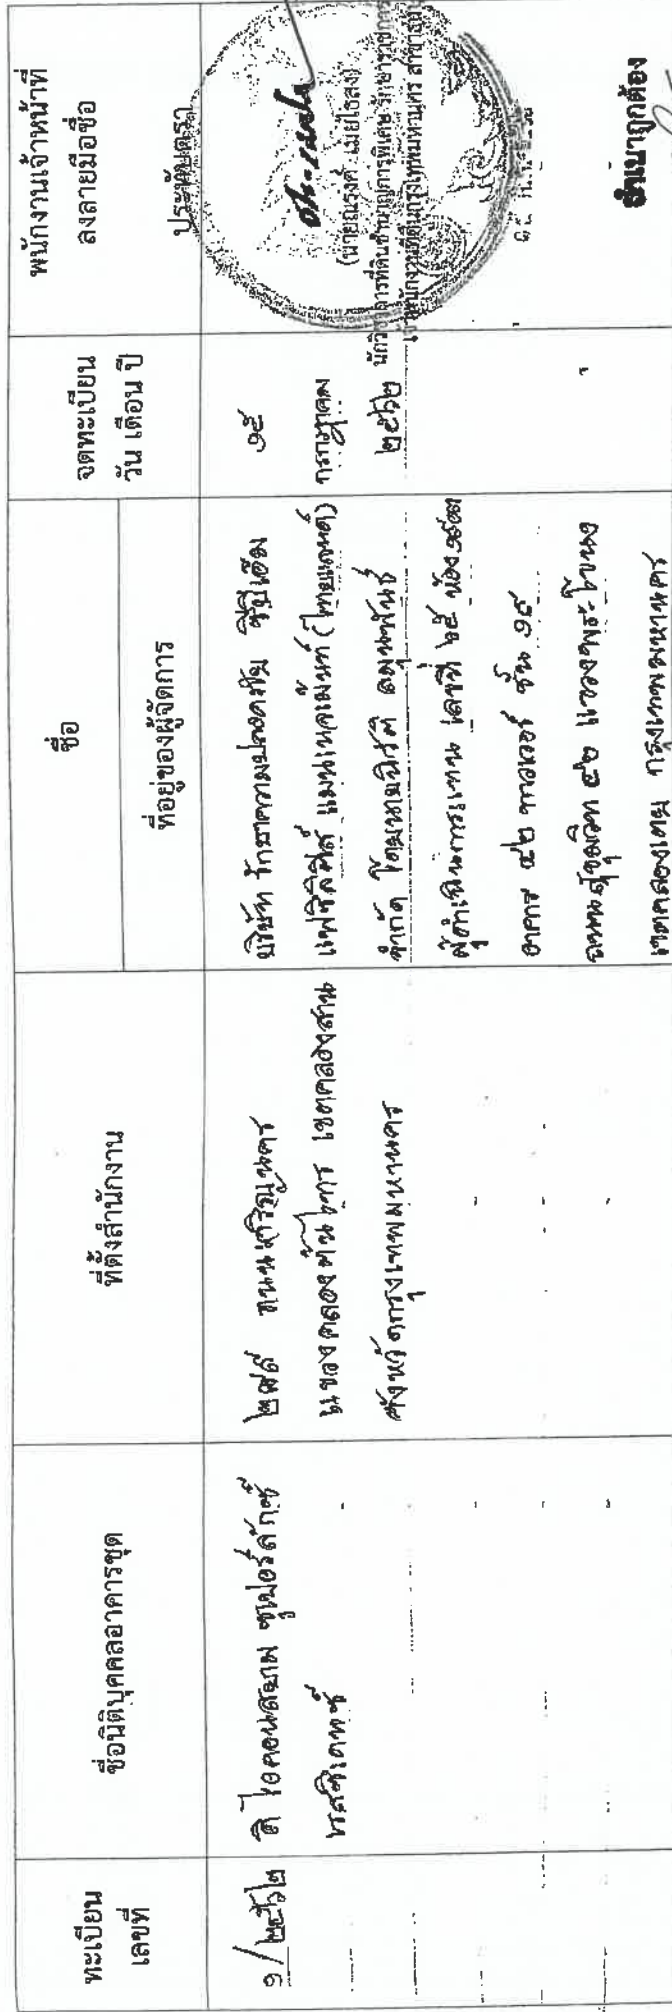 ทะเบียน
เลขที่
ชื่อนิติบุคคลอาคารชุด
ที่ตั้งสำนักงาน
ชื่อ
ที่อยู่ของผู้จัดการ
จดทะเบียน
วัน เดือน ปี
พนักงานเจ้าหน้าที่
ลงลายมือชื่อ
ประทับตรา
๑/๒๕๖๒
ดิ ไอคอนสยาม ซูเปอร์ลักซ์
เรสซิเดนซ์
๒๗๙ ถนนเจริญนคร
แขวงคลองต้นไทร เขตคลองสาน
จังหวัดกรุงเทพมหานคร
บริษัท รักษาความปลอดภัย ซีบีเอ็ม
แฟซิลิตี้ส์ แมนเนจเม้นท์ (ไทยแลนด์)
จำกัด โดยนาย
ผู้ดำเนินการแทน เลขที่ ๒๕ ห้อง
อาคาร ๔๒ ทาวเวอร์ ชั้น ๑๙
ถนนสุขุมวิท ๔๒ แขวงพระโขนง
เขตคลองเตย กรุงเทพมหานคร
๑๕
กรกฎาคม
๒๕๖๒
นักวิชาการที่ดินชำนาญการพิเศษ รักษาราชการ
เจ้าพนักงานที่ดินกรุงเทพมหานคร สาขาธนบุรี
สำเนาถูกต้อง